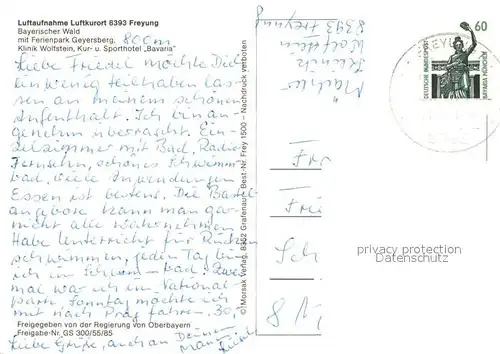 Luftaufnahme Luftkurort 8393 Freyung
Bayerischer Wald 800m
mit Ferienpark Geyersberg,
Klinik Wolfstein, Kur- u. Sporthotel „Bavaria"
Liebe Friedel möchte Dich
Ein wenig teilhaben las-
sen an meinem schönen
Aufenthalt. Ich bin an-
genehm überrascht. Ein-
zelzimmer mit Bad, Radio
Fernsehn, schönes Schwimm-
bad, viele Anwendungen
Essen ist bestens. Die Bastel-
angebote kann man gar
nicht alle wahrnehmen
Habe Unterricht für Rücken
schwimmen, jeden Tag bin
ich im Schwimm-bad. Zwei
mal war ich im National-
park, Sonntag möchte ich
mit nach Prag fahren. 30,-
Freigegeben von der Regierung von Oberbayern
Freigabe-Nr. GS 300/55/85
Liebe Grüße, auch an Deinen
Mann
© Morsak Verlag, 8352 Grafenau Best.-Nr. Frey 1500 - Nachdruck verboten
Klinik
Wolfstein
8393 Freyung
60
DEUTSCHE BUNDESPOST
BAVARIA MÜNCHEN
FREYU
Fr
Sch
8
privacy protection
Datenschutz